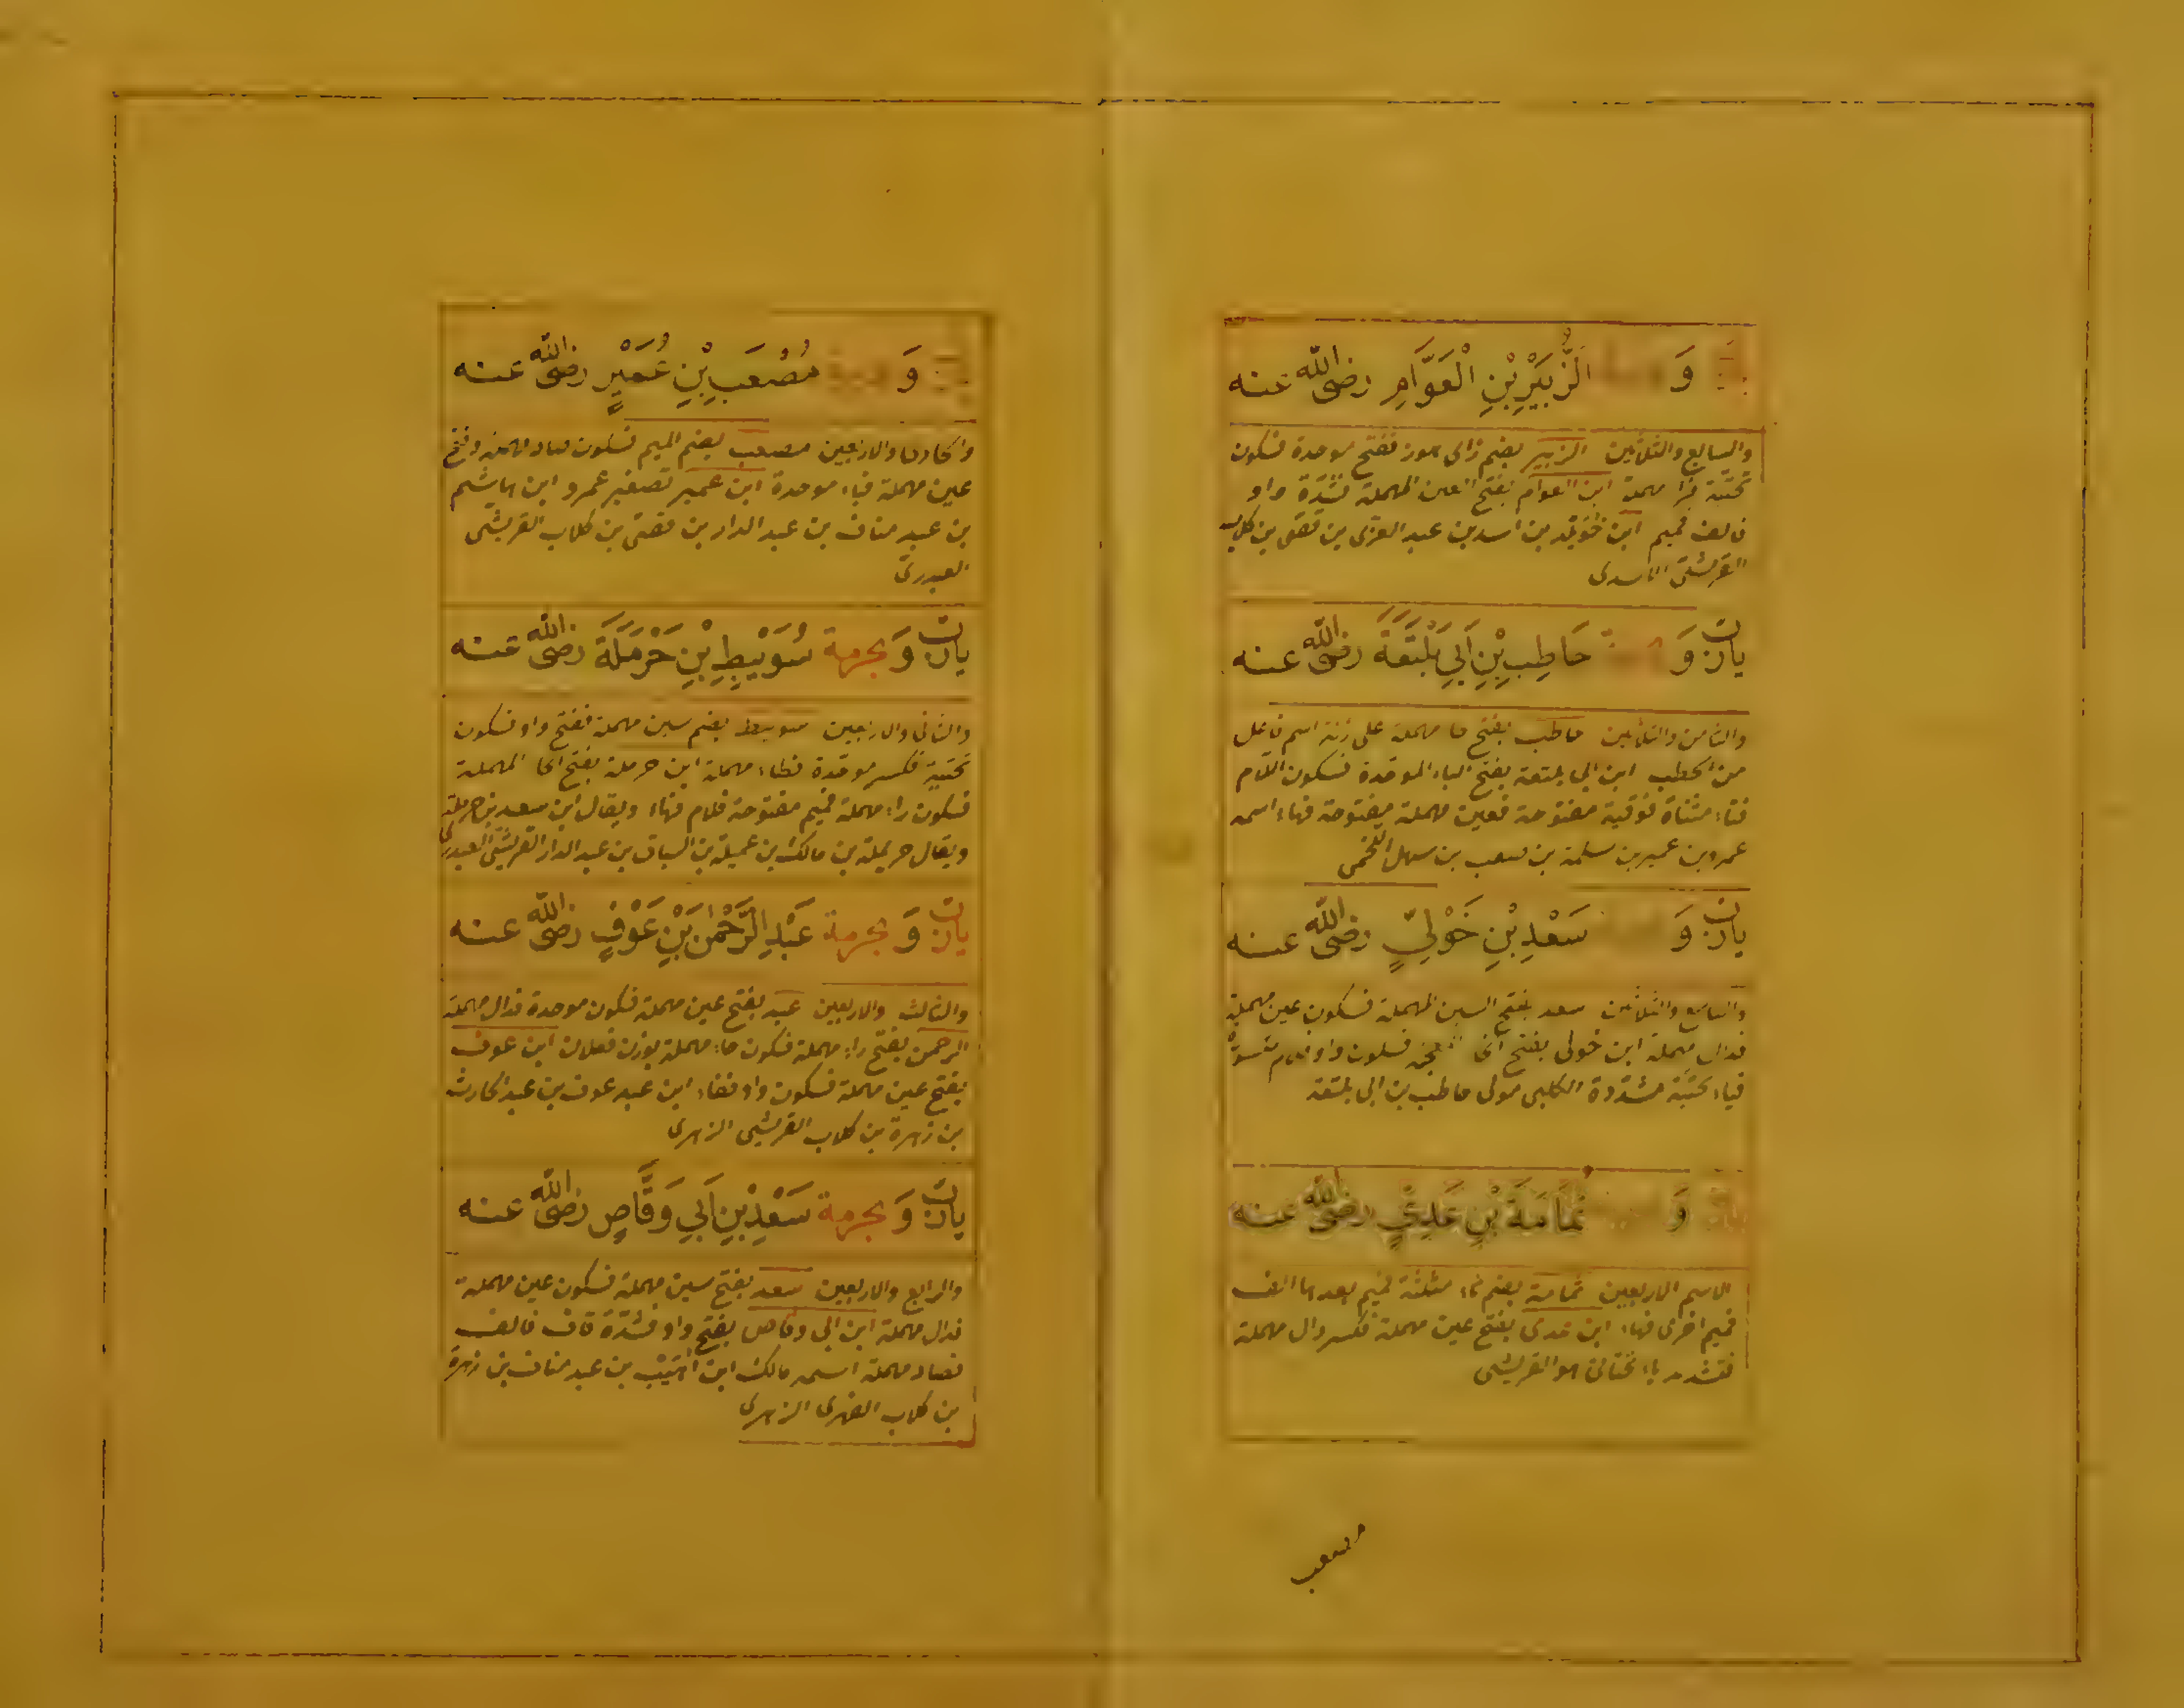 وَ الزُّبَيْرِ بْنِ الْعَوَّامِ رضی الله عنه
والسابع والثلاثين الزبير بضم زای هوز ففتح موحدة فسكون
تحتية فرا مهملة ابن العوام بفتح العين المهملة فشدة واو
فالف فميم ابن خويلد بن اسد بن عبد العزى بن قصى بن كلاب
القرشى الاسدى
يارب وَ حَاطِبِ بْنِ اَبِي بَلْتَعَةَ رضی الله عنه
والثامن والثلاثين حاطب بفتح حا مهملة على زنة اسم فاعل
من الحطب ابن ابى بلتعة بفتح الباء الموحدة فسكون اللام
فتاء مثناة فوقية مفتوحة فعين مهملة مفتوحة فهاء اسمه
عمرو بن عمير بن سلمة بن صعب بن سهل اللخمى
يارب وَ سَعْدِ بْنِ خَوْلِيٍّ رضی الله عنه
والتاسع والثلاثين سعد بفتح السين المهملة فسكون عين مهملة
فدال مهملة ابن خولى بفتح الخا فسكون واو
فياء تحتية مشددة الكلبى مولى حاطب بن ابى بلتعة
وَ ثُمَامَةَ بْنِ عَدِيٍّ رضی الله عنه
الاسم الاربعين ثمامة بضم ثاء مثلثة فميم بعدها الف
فميم اخرى فهاء ابن عدى بفتح عين مهملة فكسر دال مهملة
فتشديد ياء تحتانى هو القرشى
مصعب
وَ مُصْعَبِ بْنِ عُمَيْرٍ رضی الله عنه
والحادى والاربعين مصعب بضم الميم فسكون صاد مهملة وفتح
عين مهملة فباء موحدة ابن عمير تصغير عمرو ابن هاشم
بن عبد مناف بن عبد الدار بن قصى بن كلاب القرشى
العبدرى
يارب وَ بحرمة سُوَيْبِطِ بْنِ حَرْمَلَةَ رضی الله عنه
والثانى والاربعين سويبط بضم سين مهملة ففتح واو فسكون
تحتية فكسر موحدة فطاء مهملة ابن حرملة بفتح الحا المهملة
فسكون راء مهملة فميم مفتوحة فلام فهاء ويقال ابن سعد بن حرملة
ويقال حريملة بن مالك بن عميلة بن السباق بن عبد الدار القرشى العبدرى
يارب وَ بحرمة عَبْدِ الرَّحْمٰنِ بْنِ عَوْفٍ رضی الله عنه
والثالث والاربعين عبد بفتح عين مهملة فسكون موحدة فدال مهملة
الرحمن بفتح راء مهملة فسكون حاء مهملة بوزن فعلان ابن عوف
بفتح عين مهملة فسكون واو ففاء ابن عبد عوف بن عبد الحارث
بن زهرة بن كلاب القرشى الزهرى
يارب وَ بحرمة سَعْدِ بْنِ اَبِي وَقَّاصٍ رضی الله عنه
والرابع والاربعين سعد بفتح سين مهملة فسكون عين مهملة
فدال مهملة ابن ابى وقاص بفتح واو فشدة قاف فالف
فصاد مهملة اسمه مالك ابن اهيب بن عبد مناف بن زهرة
بن كلاب الفهرى الزهرى